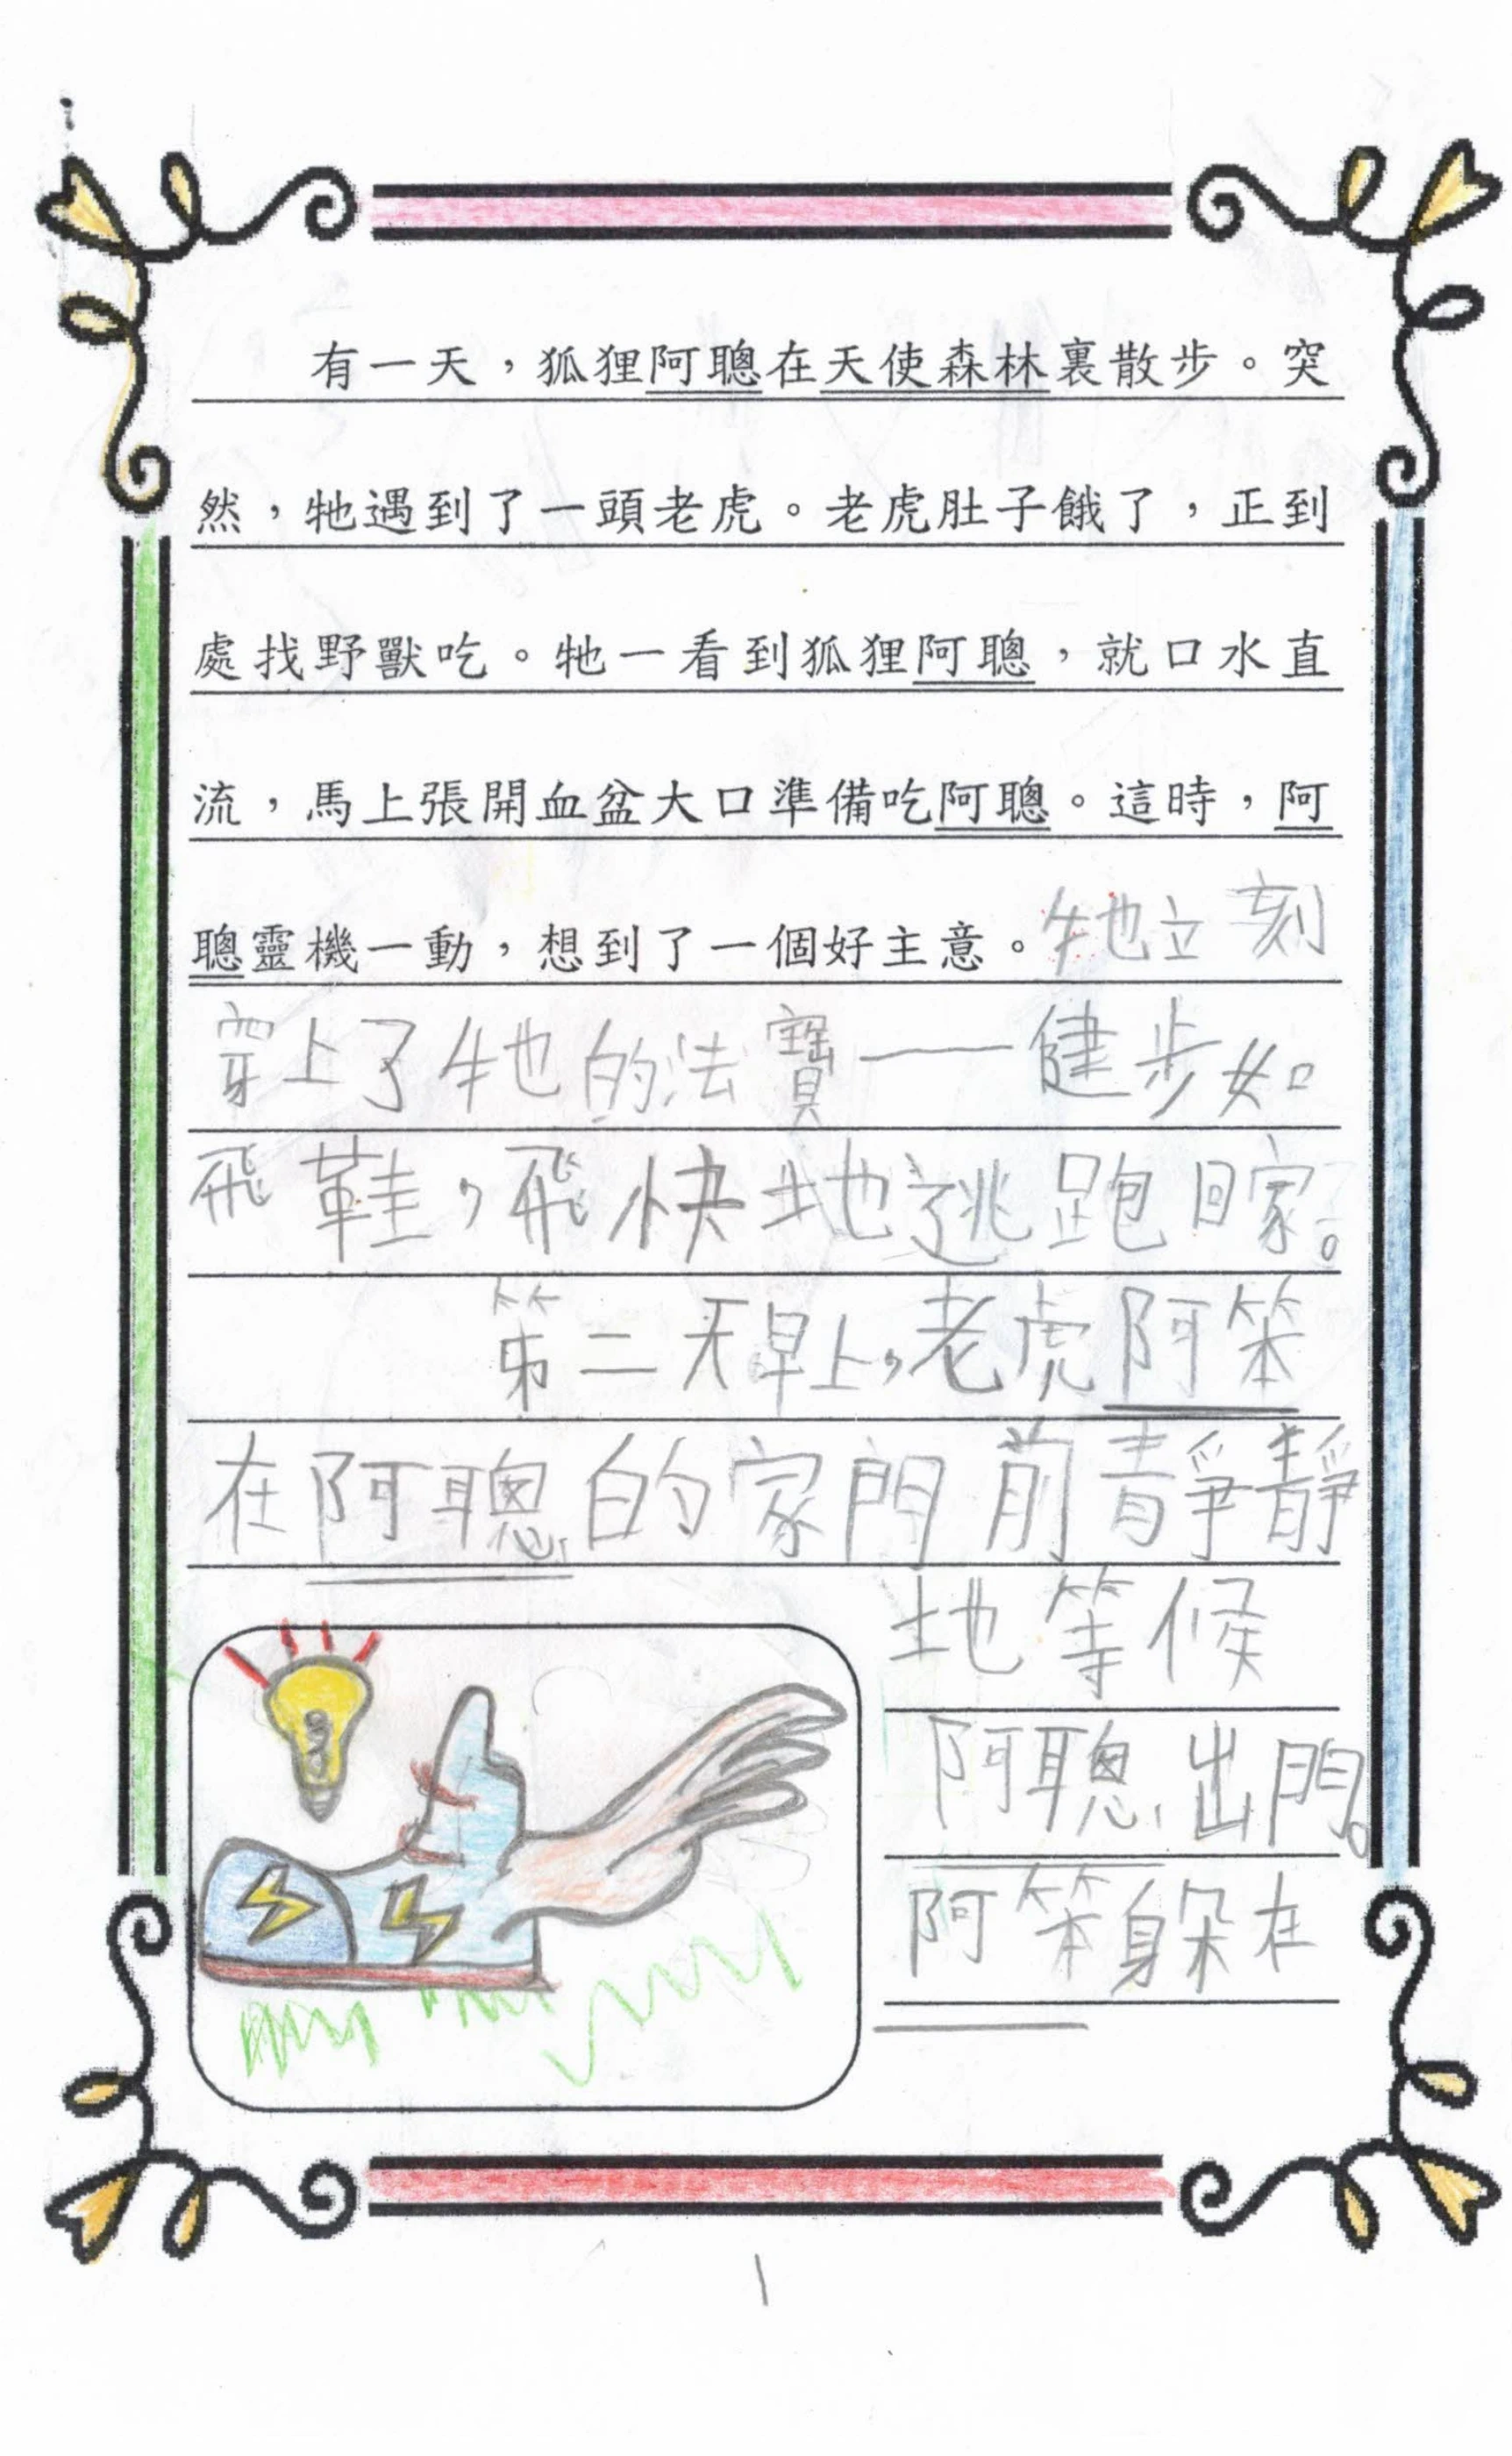 有一天，狐狸阿聰在天使森林裏散步。突
然，牠遇到了一頭老虎。老虎肚子餓了，正到
處找野獸吃。牠一看到狐狸阿聰，就口水直
流，馬上張開血盆大口準備吃阿聰。這時，阿
聰靈機一動，想到了一個好主意。牠立刻
穿上了牠的法寶——健步如
飛鞋，飛快地逃跑回家。
第二天早上，老虎阿笨
在阿聰的家門前靜靜
地等候
阿聰出門。
阿笨躲在
1